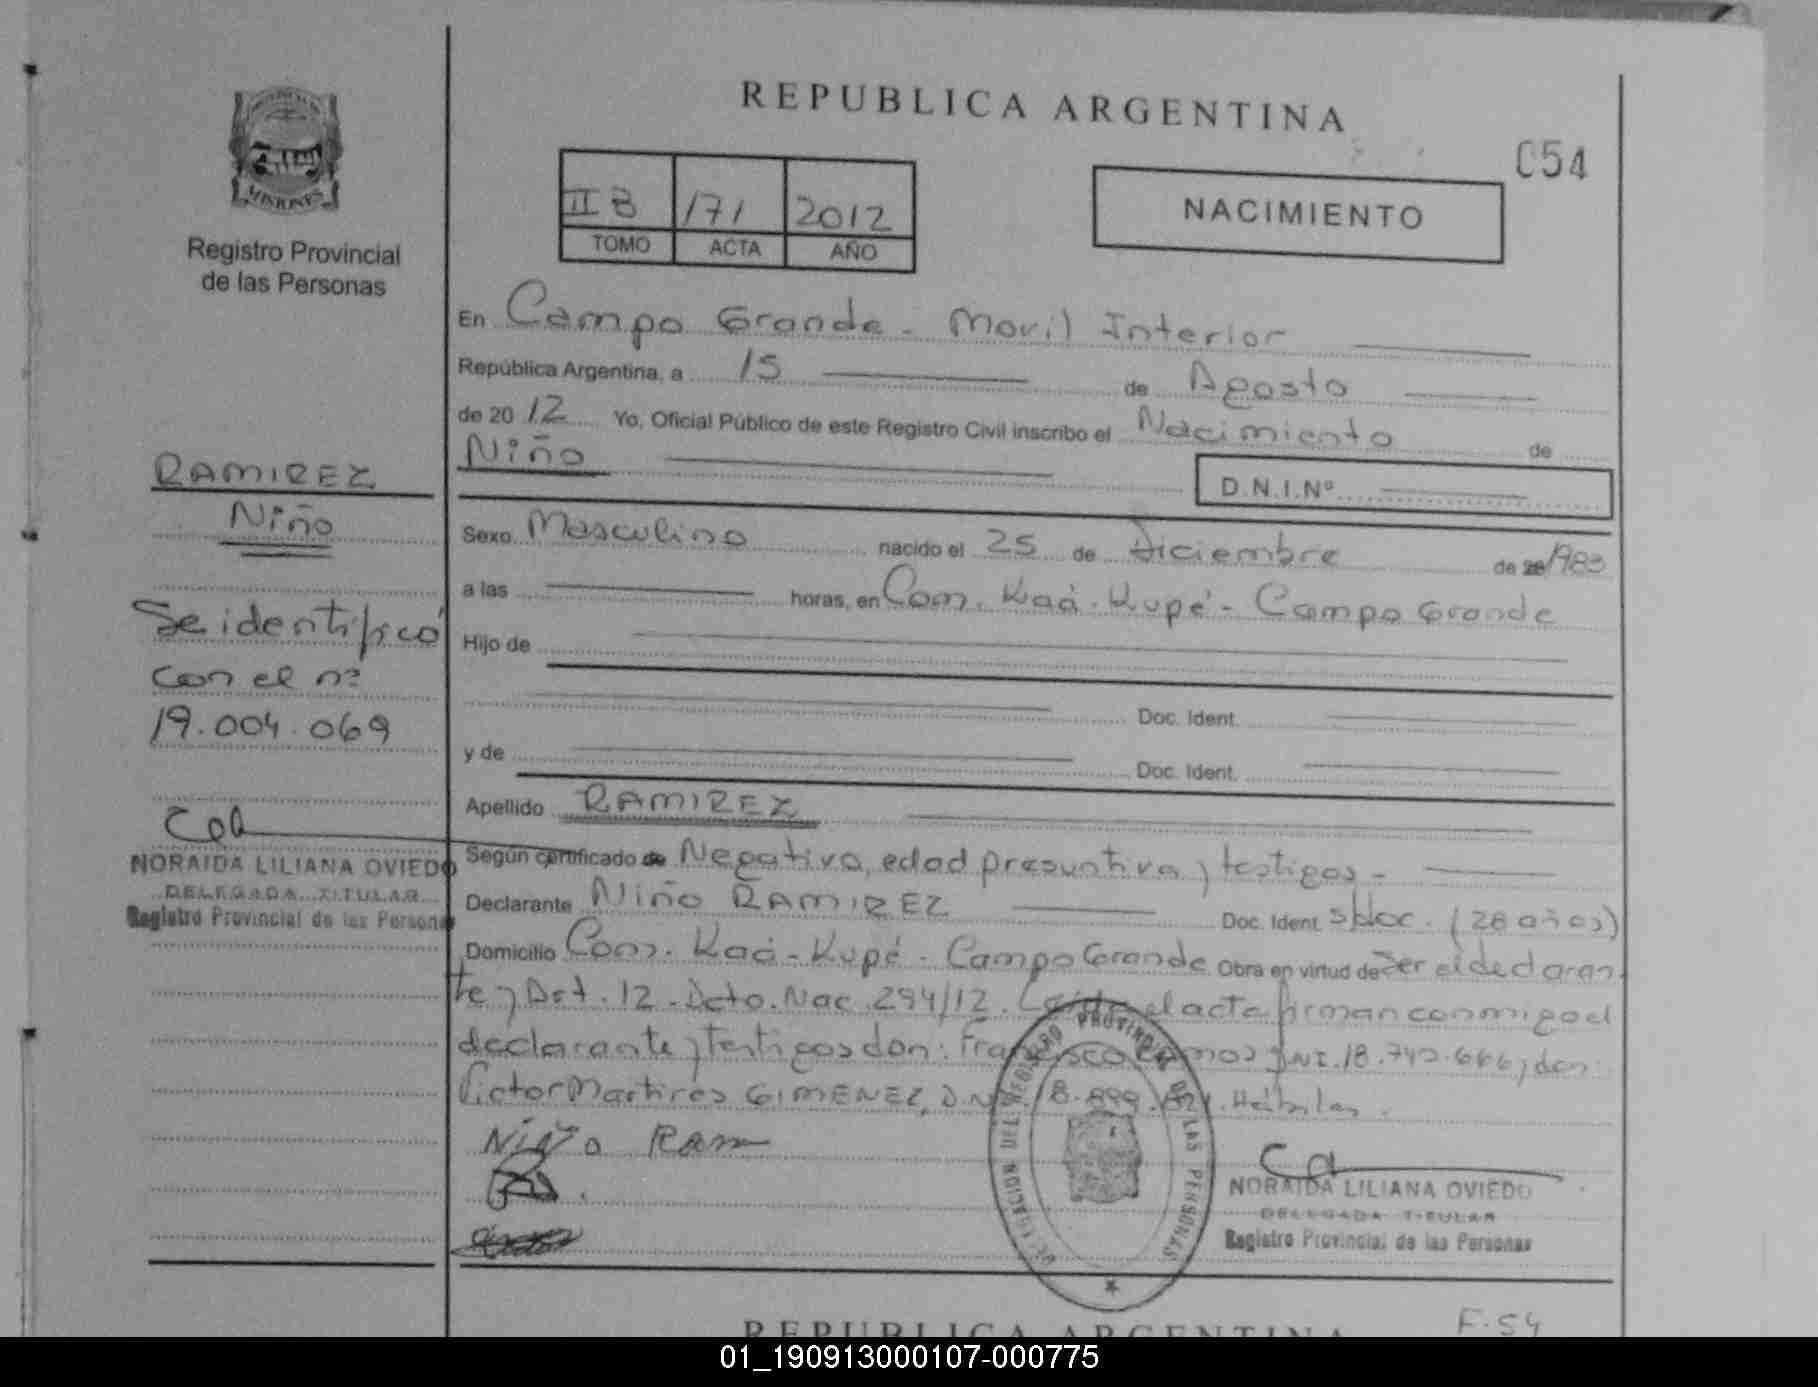 REPUBLICA ARGENTINA
C54
MISIONES
Registro Provincial
de las Personas
II B 171 2012
TOMO ACTA AÑO
NACIMIENTO
En Campo Grande - Movil Interior
República Argentina, a 15 de Agosto
de 20 12 Yo, Oficial Público de este Registro Civil inscribo el Nacimiento de
Niño
D.N.I.Nº
RAMIREZ
Niño
Se identificó
con el nº
19.004.069
NORAIDA LILIANA OVIEDO
DELEGADA TITULAR
Registro Provincial de las Personas
Sexo Masculino nacido el 25 de Diciembre de 20 1983
a las horas, en Com. Kaá-Kupé - Campo Grande
Hijo de
Doc. Ident.
y de Doc. Ident.
Apellido RAMIREZ
Según certificado de Negativa, edad presuntiva y testigos -
Declarante Niño RAMIREZ Doc. Ident. s/doc. (28 años)
Domicilio Com. Kaá-Kupé - Campo Grande Obra en virtud de Ser el declaran
te y Art. 12 - Dcto. Nac. 294/12. Leída el acta firman conmigo el
declarante y testigos don: Francisco DNI. 18. y don:
Victor Martires GIMENEZ, D.N.I. Hábiles.
Niño Ram
DELEGACION DEL REGISTRO PROVINCIAL DE LAS PERSONAS
NORAIDA LILIANA OVIEDO
DELEGADA TITULAR
Registro Provincial de las Personas
REPUBLICA ARGENTINA
F.54
01_190913000107-000775